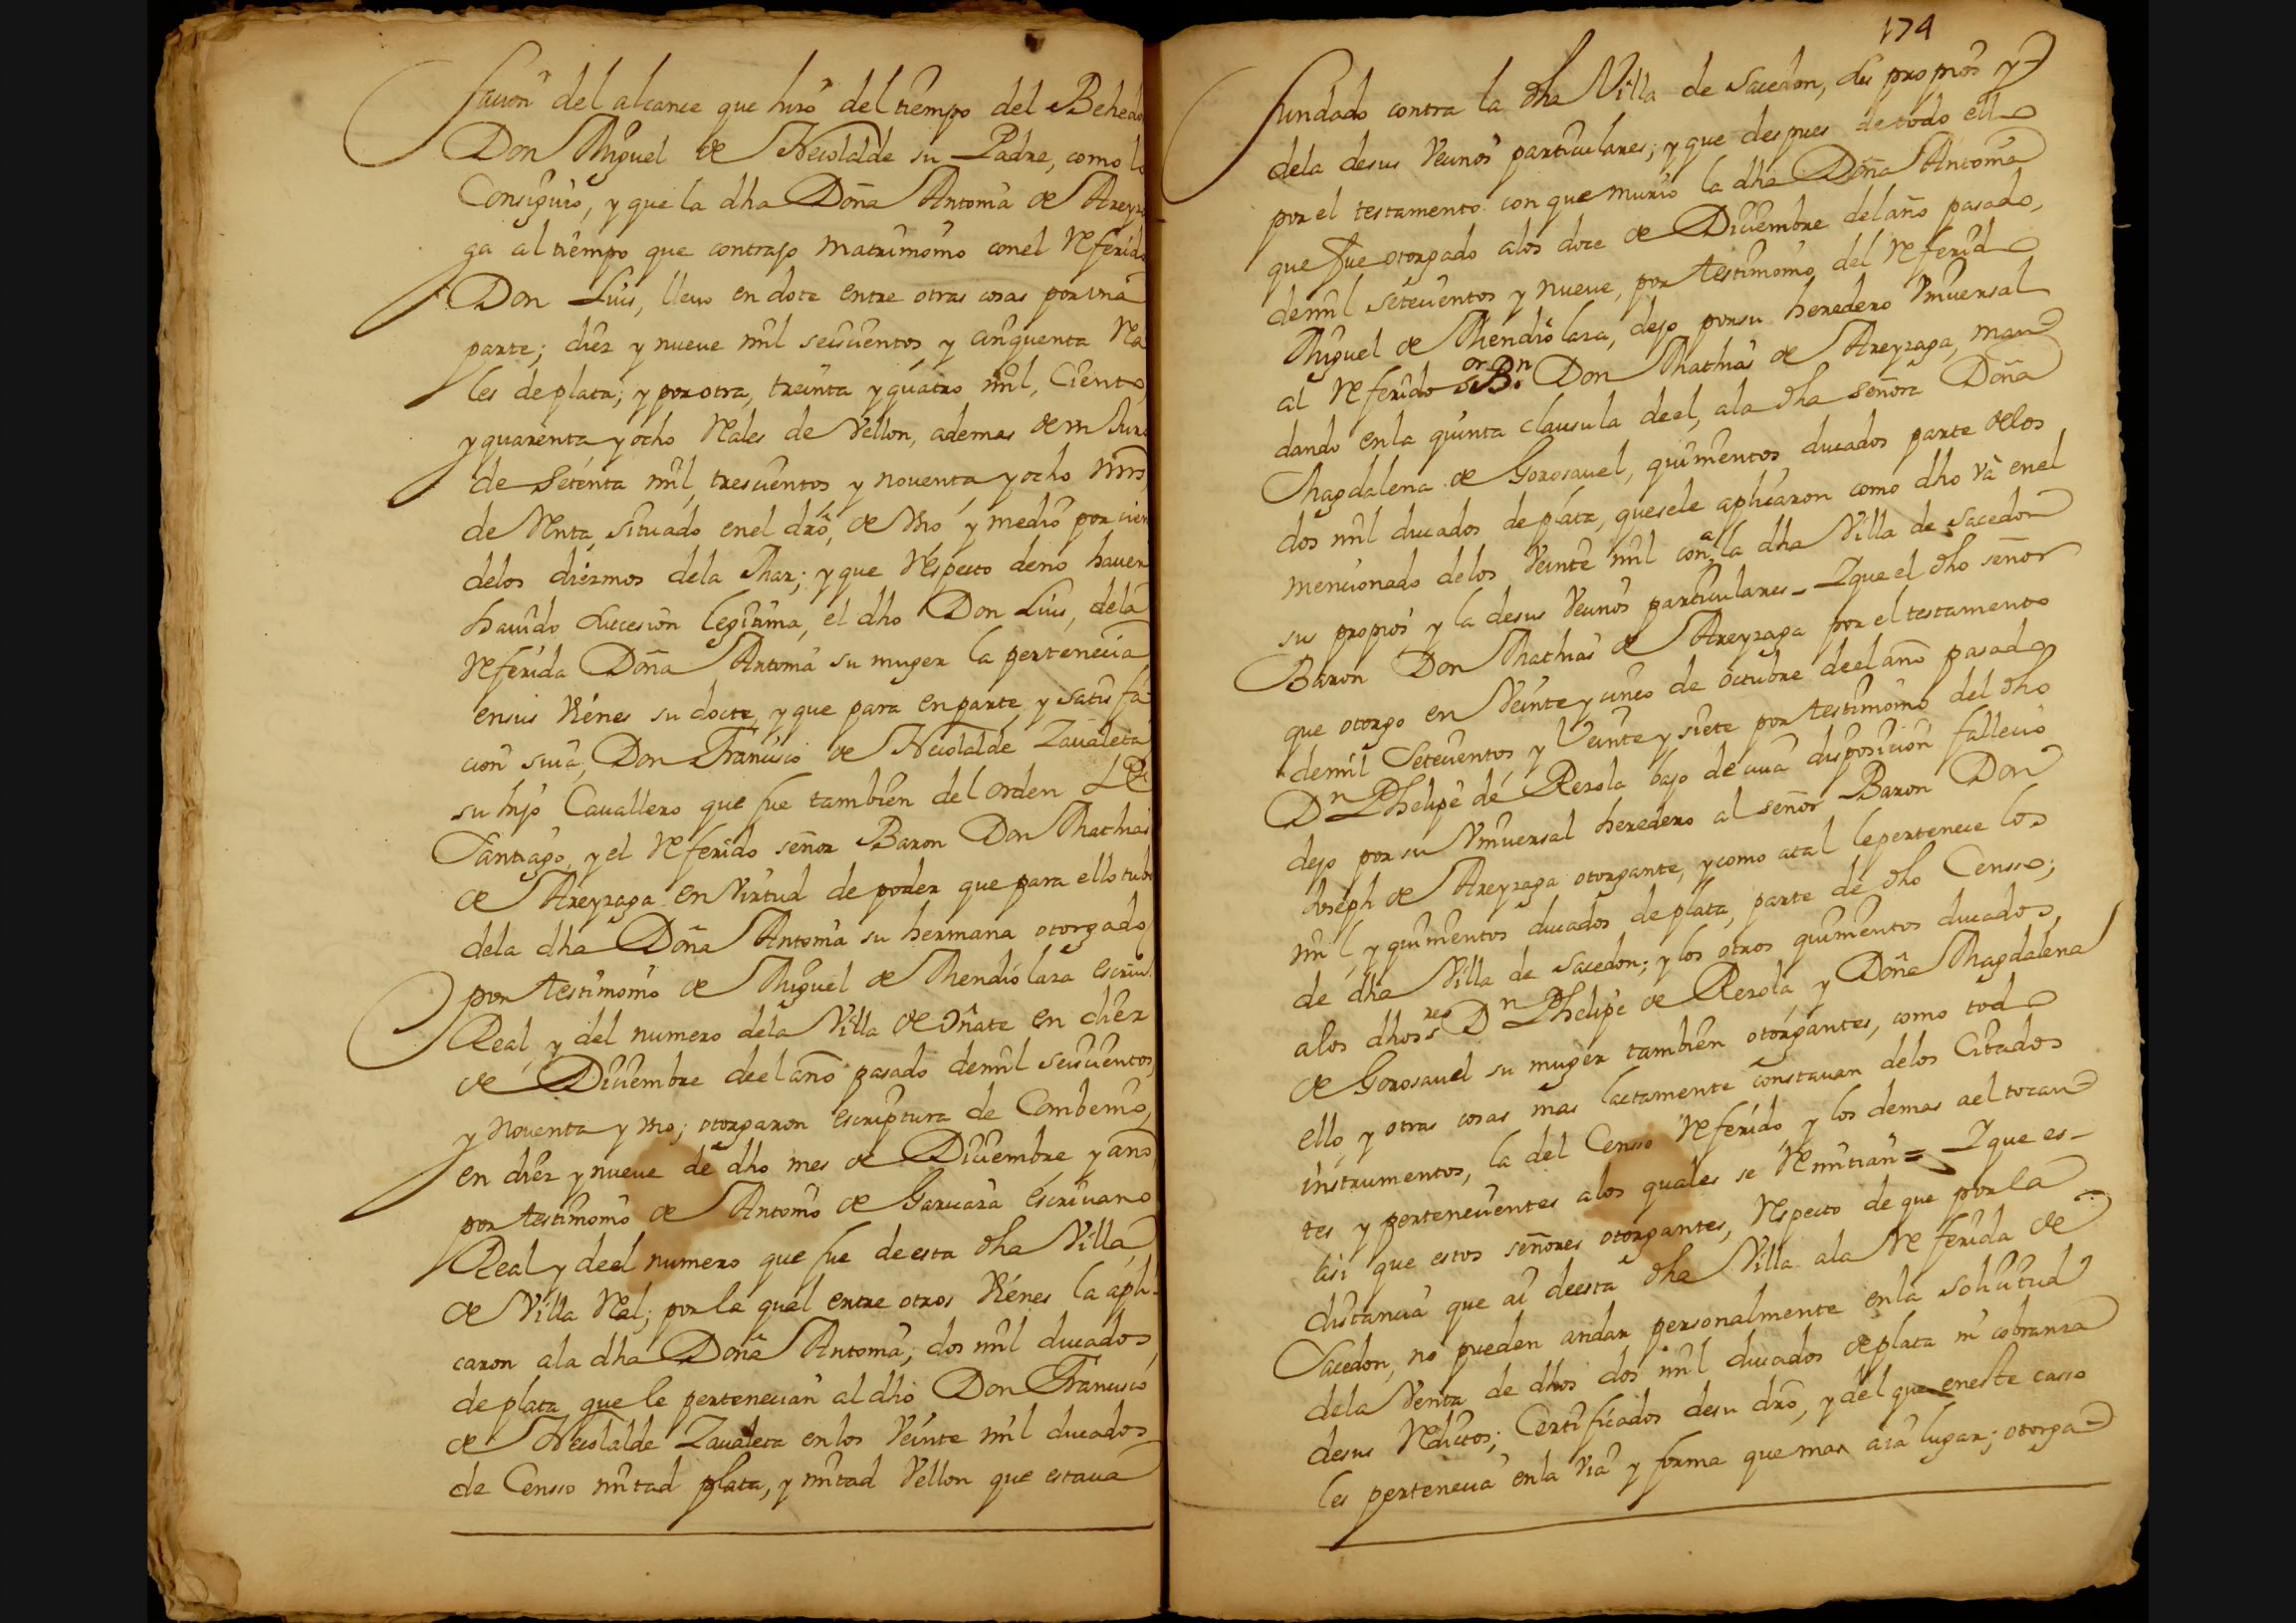 facion del alcance que hizo del tiempo del Behedo
Don Miguel de Necolalde su Padre, como lo
Consiguio, y que la dha Doña Antonia de Areyza
ga al tiempo que contrajo matrimonio conel Referido
Don Luis, llevo en dote entre otras cosas por vna
parte; diez y nueve mil seiscientos y cinquenta Rea
les de plata; y por otra, treinta y quatro mil, Ciento,
y quarenta y ocho Reales de Vellon, ademas de vn Juro
de Setenta mil trescientos y noventa y ocho mrs
de Renta, situado enel dro, de Vno y medio por cien
delos diezmos dela Mar; y que Respecto deno haver
havido subcesion legitima, el dho Don Luis, dela
Referida Doña Antonia su muger la pertenecia
ensus Vienes su docte, y que para enparte y satisfa-
cion suia, Don Francisco de Necolalde Zavaleta
su hijo Cavallero que fue tambien del orden de
Santiago, y el Referido señor Baron Don Mathias
de Areyzaga en Virtud de poder que para ello tubo
dela dha Doña Antonia su hermana otorgado
por testimonio de Miguel de Mendiolaza escriu.
Real, y del numero dela Villa de Oñate en diez
de Diciembre deel año pasado demil seiscientos
y noventa y vno; otorgaron escriptura de Combenio,
en diez y nueve de dho mes de Diciembre y año
por testimonio de Antonio de Garuara escrivano
Real y deel numero que fue de esta dha Villa,
de Villa Real; por la qual entre otros Vienes la apli-
caron ala dha Doña Antonia; dos mil ducados
de plata que le pertenecian al dho Don Francisco
de Necolalde Zavaleta en los Veinte mil ducados
de Censso mitad plata, y mitad Vellon que estava
174
fundado contra la dha Villa de Sacedon, sus propios y
dela desus Vecinos particulares; y que despues de todo ello
por el testamento con que murio la dha Doña Antonia
que fue otorgado alos doce de Diciembre del año pasado,
demil setecientos y nueve, por testimonio del Referido
Miguel de Mendiolaza, dejo por su heredero Vniversal
al Referido sor Bn. Don Mathias de Areyzaga, man
dando enla quinta clausula deel, ala dha señora Doña
Magdalena de Gorosavel, quinientos ducados parte delos
dos mil ducados de plata, quesele aplicaron como dho và enel
mencionado delos Veinte mil contra la dha Villa de Sacedon
sus propios y la desus Vecinos particulares - Y que el dho señor
Baron Don Mathias de Areyzaga por el testamento
que otorgo en Veinte y cinco de octubre deel año pasado
demil Setecientos y Veinte y siete por testimonio del dho
Dn Phelipe de Rezola bajo de cuia disposicion fallecio
dejo por su Vniversal heredero al señor Baron Don
Joseph de Areyzaga otorgante, y como atal le pertenece los
mil y quinientos ducados de plata, parte de dho Censso;
de dha Villa de Sacedon; y los otros quinientos ducados
alos dhos sres Dn Phelipe de Rezola y Doña Magdalena
de Gorosavel su muger tambien otorgantes, como todo
ello y otras cosas mas lactamente constavan delos Citados
instrumentos, la del Censso Referido y los demas ael tocan
tes y pertenecientes alos quales se Remitian = Y que es-
asi que estos señores otorgantes, Respecto de que por la
distancia que ai deesta dha Villa ala Referida de
Sacedon, no pueden andar personalmente enla solicitud
dela Venta de dhos dos mil ducados de plata ni cobranza
desus Reditos; Certificados desu dro, y del que eneste casso
les pertenecia enla via y forma que mas aia lugar; otorga